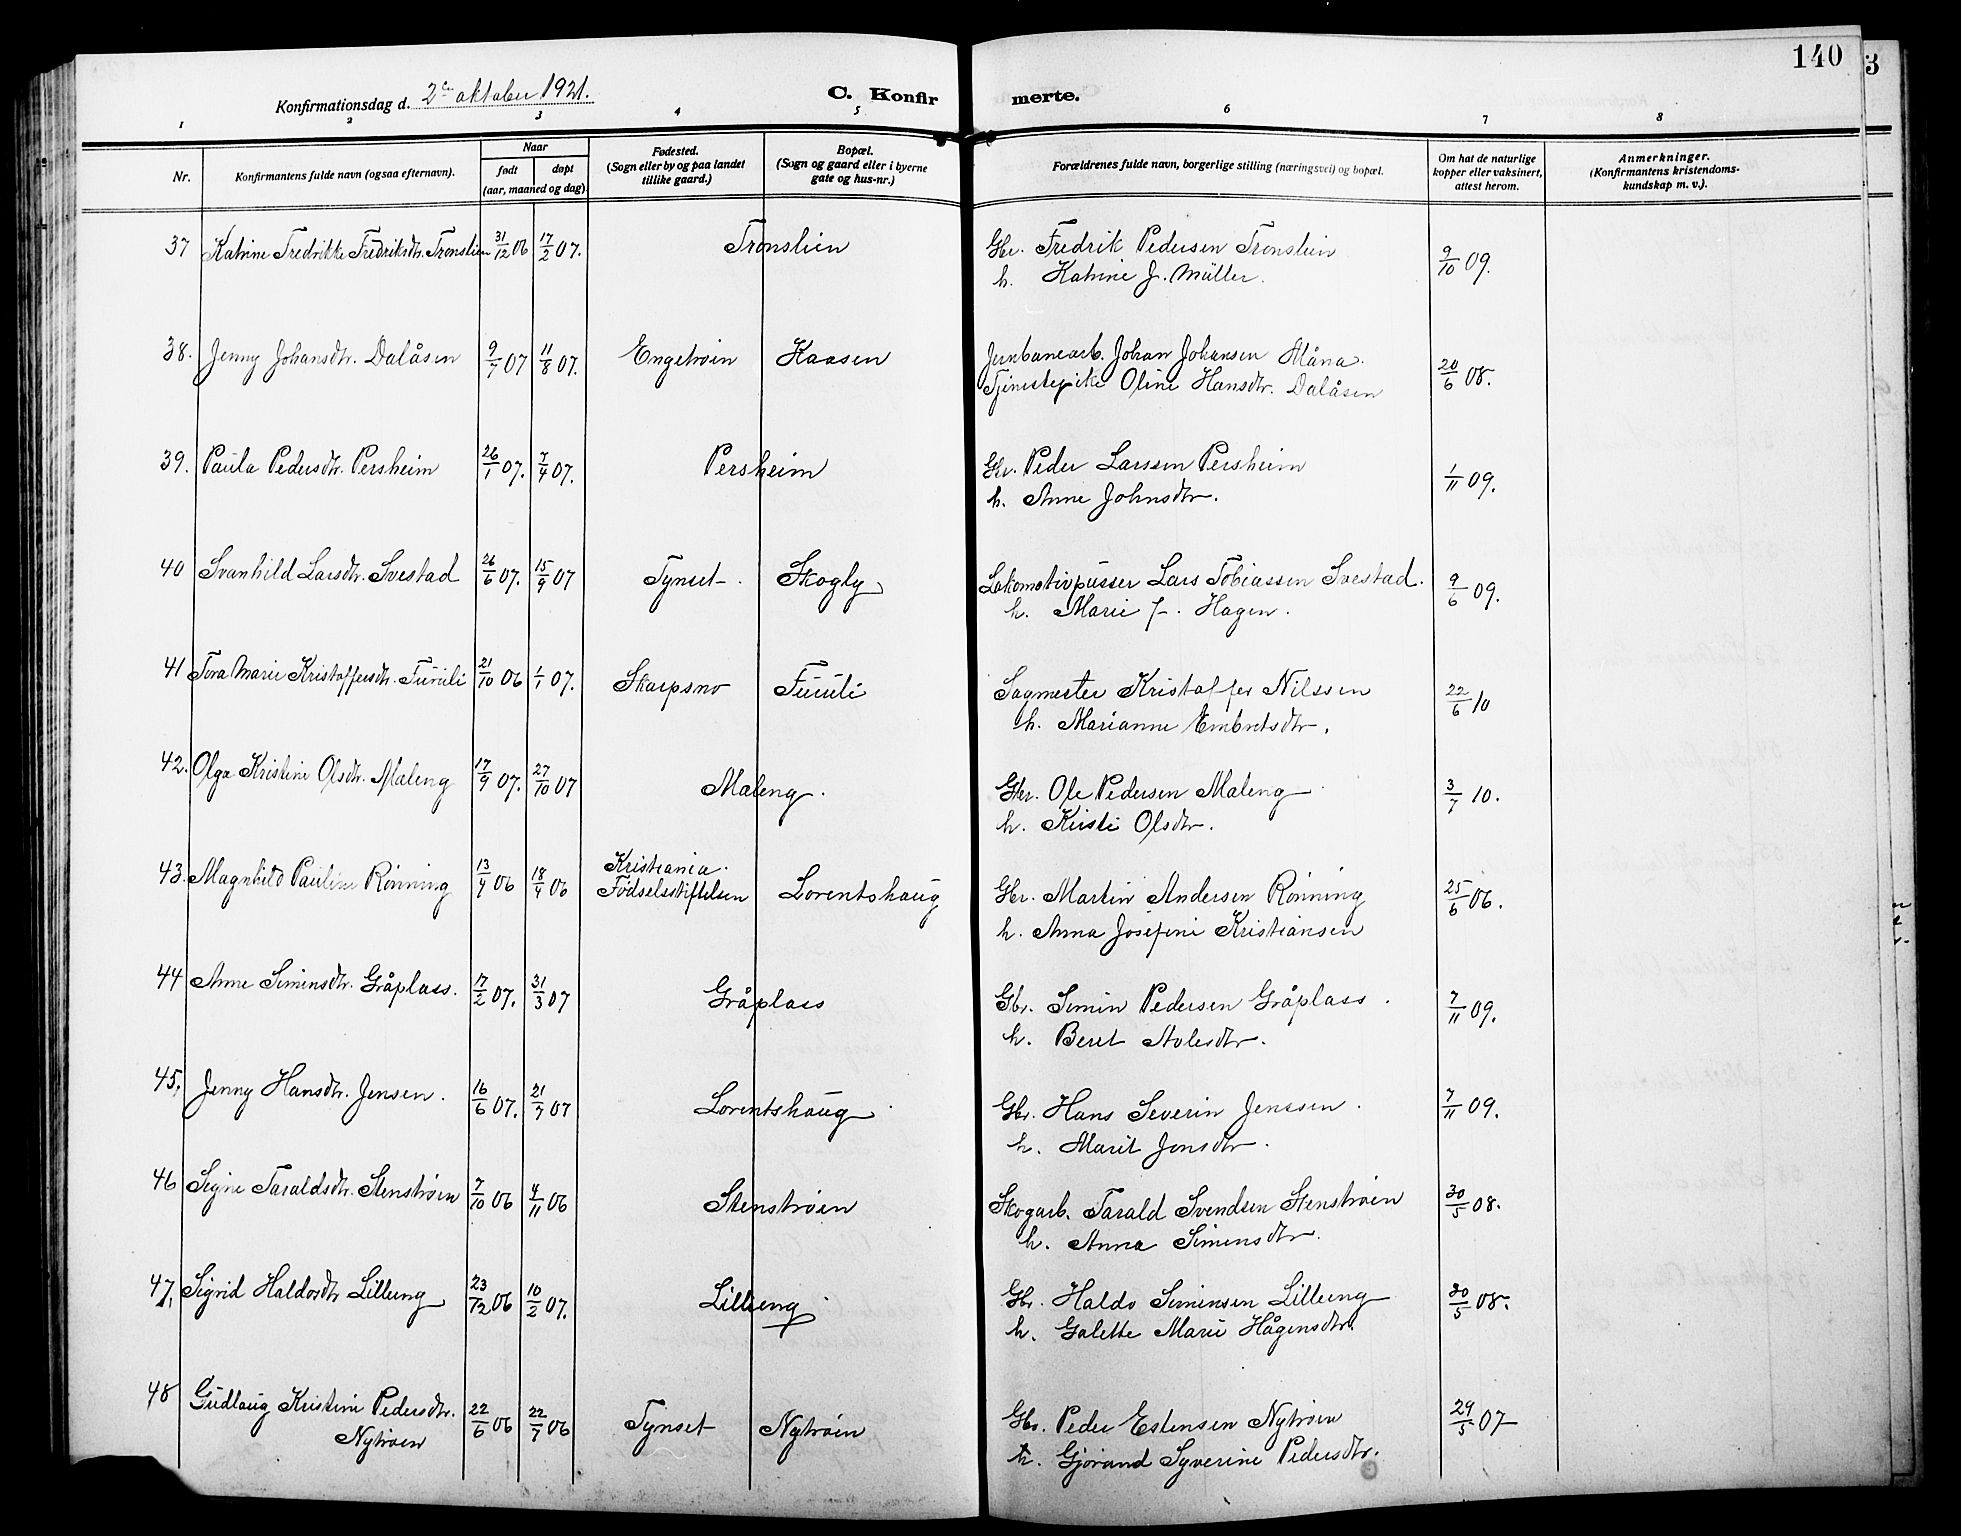 140
3
Konfirmationsdag d. 2de oktober 1921.
C. Konfir merte.
1 2 3 4 5 6 7 8
Nr.
Konfirmantens fulde navn (ogsaa efternavn).
Naar
født
døpt
(aar, maaned og dag).
Fødested.
(Sogn eller by og paa landet
tillike gaard.)
Bopæl.
(Sogn og gaard eller i byerne
gate og hus-nr.)
Forældrenes fulde navn, borgerlige stilling (næringsvei) og bopæl.
Om hat de naturlige
kopper eller vaksinert,
attest herom.
Anmerkninger.
(Konfirmantens kristendoms-
kundskap m. v.).
37 Katrine Fredrikke Fredriksdtr. Tronslien 31/12 06 17/2 07. Tronslien Gbr. Fredrik Pedersen Tronslien 9/10 09.
h. Katrine J. Müller.
38. Jenny Johansdtr. Dalåsen 9/7 07 11/8 07. Engetrøin Kaasen Jernbanearb. Johan Johansen Måna. 20/6 08.
Tjenestepike Oline Hansdtr. Dalåsen
39. Paula Pedersdtr. Persheim 26/1 07. 7/4 07. Persheim Gbr. Peder Larssen Persheim 1/11 09.
h. Anne Johnsdtr.
40 Svanhild Larsdtr. Svestad 26/6 07. 15/9 07 Tynset. Skogly Lokomotivpusser Lars Tobiassen Svestad. 9/6 09.
h. Marie f. Hagen.
41 Tora Marie Kristoffersdtr. Furuli 21/10 06 1/1 07. Skarpsno Furuli Sagmester Kristoffer Nilssen 22/6 10
h. Marianne Embretsdtr.
42. Olga Kristine Olsdtr. Mæleng 17/9 07. 27/10 07 Maleng. Gbr. Ole Pedersen Maleng 3/7 10.
h. Kristi Olsdtr.
43. Magnhild Pauline Rønning 13/4 06 18/4 06 Kristiania. Fødselsstiftelsen Lorentshaug Gbr. Martin Andersen Rønning 25/6 06.
h. Anna Josefine Kristiansen
44 Anne Simensdtr. Gråplass. 17/2 07. 31/3 07 Gråplass Gbr. Simen Pedersen Gråplass. 7/11 09.
h. Beret Avlesdtr.
45. Jenny Hansdtr. Jensen. 16/6 07. 21/7 07 Lorentshaug Gbr. Hans Severin Jenssen. 7/11 09.
h. Marit Jonsdtr.
46 Signe Taraldsdtr. Stenstrøen 7/10 06 4/11 06 Stenstrøen Skogarb. Tarald Svendsen Stenstrøen 30/5 08.
h. Anna Simensdtr.
47. Sigrid Haldosdtr Lilleeng 23/12 06 10/2 07. Lilleeng Gbr. Haldo Simensen Lilleeng 30/5 08.
h. Galette Marie Hågensdtr.
48 Gudlaug Kristine Pedersdtr. 22/6 06 22/7 06 Tynset Nytrøen Gbr. Peder Estensen Nytrøen 29/5 07
Nytrøen h. Gjørand Syverine Pedersdtr.